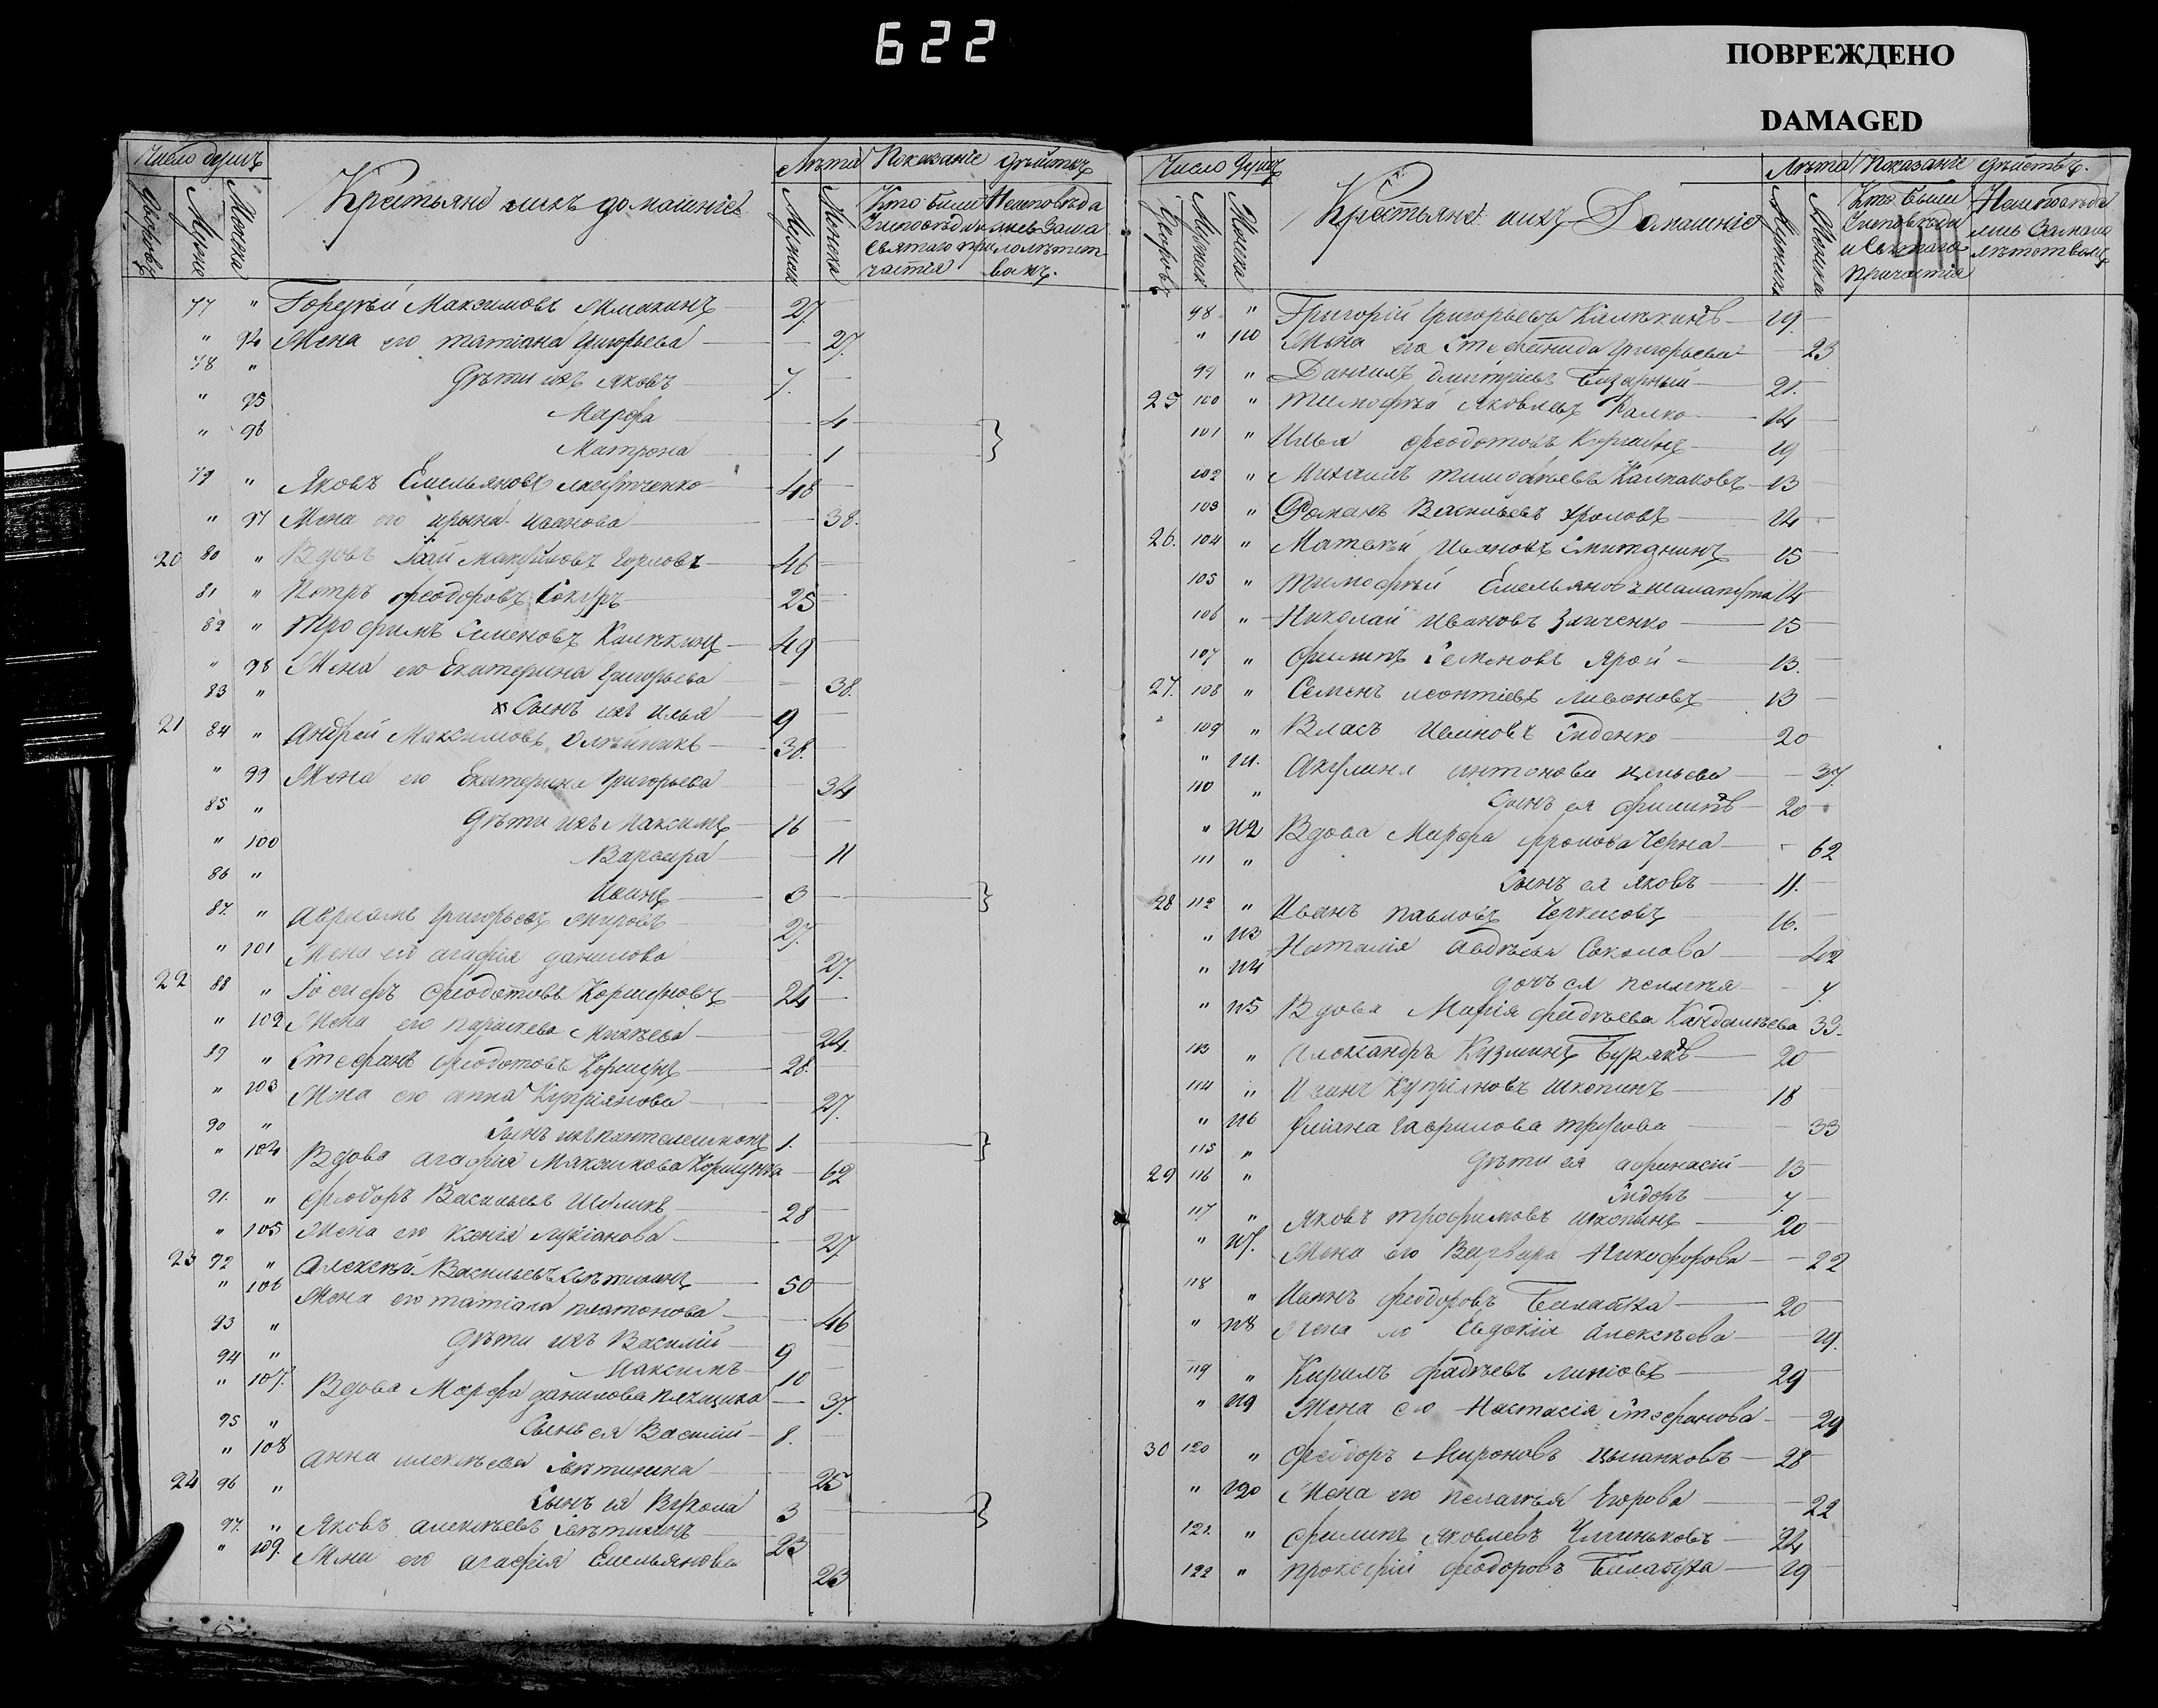 622
ПОВРЕЖДЕНО
DAMAGED
Число душъ
Дворовъ
Мужес
Женска
Крестьяне ихъ домашнiе
Лѣта
Мужеск
Женска
Показанiе дѣйствъ
Кто были исповѣди и святаго причастiя
Неисповѣдались за малолѣтствомъ.
77 " Гордѣй Максимовъ 27.
" 94 Жена его татiана григорьева 27.
78 " Дѣти ихъ яковъ 7.
" 95 Марфа 4
" 96 Матрона 1
79 " Яковъ Емельяновъ 48
" 97 Жена его ирына иванова 38.
20 80 " Вдовъ горловъ 46
81 " Петръ феодоровъ Кокуръ 25
82 " Трофимъ Семеновъ Калѣкинъ 49
" 98 Жена его Екатерина григорьева 38.
83 " Сынъ ихъ илья 9
21 84 " Андрей Максимовъ Олѣйникъ 38.
" 99 Жена его Екатерина григорьева 34
85 " Дѣти ихъ Максимъ 16
" 100 Варвара 11
86 " Иванъ 3
87. " Авраамъ григорьевъ 27.
" 101 Жена его агафiя данилова 27.
22 88 " Iосифъ феодотовъ Коршуновъ 24
" 102 Жена его параскева 24.
89 " Стефанъ феодотовъ Коршунъ 28.
" 103 Жена его анна Купрiянова 27.
90 " Сынъ ихъ пантелеимонъ 1.
" 104 Вдова агафiя Максимова Коршунка 62
91. " Феодоръ Васильевъ 28
" 105 Жена его Ксенiя лукiанова 27
23 92 " Алексѣй Васильевъ Свѣтишинъ 50
" 106 Жена его татiана платонова 46
93 " Дѣти ихъ Василiй 9
94 " Максимъ 10
" 107. Вдова Марфа данилова 37.
95 " Сынъ ея Василiй 8.
" 108 Анна алексѣева 25
24 96 " Сынъ ея 3
97. " Яковъ алексѣевъ 23
" 109. Жена его агафiя Емельянова 23
Число душъ
Дворовъ
Мужеск
Женска
Крестьяне ихъ Домашнiе
Лѣта
Мужеска
Женска
Показанiе дѣйствъ.
Кто были исповѣди и святаго причастiя
Неисповѣдались за малолѣтствомъ
98 " Григорiй григорьевъ Калѣкинъ 19.
" 110 Жена его Стефанида григорьева 23
99 " Данiилъ дмитрiевъ 21.
25 100 " Тимофѣй яковлевъ Палко 14
101 " Илья феодотовъ Коршунъ 19
102 " Михаилъ тимофѣевъ Калпаковъ 13
103 " Романъ Васильевъ Фроловъ 14
26. 104 " Матвѣй ивановъ 15
105 " Тимофѣй Емельяновъ шалапута 14
106 " Николай ивановъ Зинченко 15
107 " Филипъ Семеновъ Ярой 13.
27. 108 " Семенъ леонтiевъ ливоновъ 13
109 " Власъ ивановъ 20
" 111. Акулина антонова 37.
110 " Сынъ ея филипъ 20
" 112 Вдова Марфа фролова Черна 62
111 " Сынъ ея яковъ 11.
28 112 " Иванъ павловъ Черкесовъ 16.
" 113 Наталiя авдѣева Соколова 42
" 114 дочь ея пелагѣя 7.
" 115 Вдова Марiя фадѣева Кандалѣева 33.
113 " Александръ Кузминъ Бураковъ 20
114 " Иванъ Купрiяновъ Шкопинъ 18
" 116 Улiяна гаврилова трусова 33
115 " Дѣти ея афанасiй 13
29 116 " Сидоръ 7.
117 " Яковъ трофимовъ шкопинъ 20
" 117. Жена его Варвара Никифорова 22
118 " Иванъ феодоровъ Билашка 20
" 118 Жена его Евдокiя алексѣева 19.
119 " Кирилъ фадѣевъ 29
" 119 Жена его Настасiя Стефанова 29
30 120 " Феодоръ Мироновъ 28
" 120 Жена его пелагѣя Егорова 22
121. " Филипъ яковлевъ 24
122 " Прокофiй феодоровъ Билашка 19